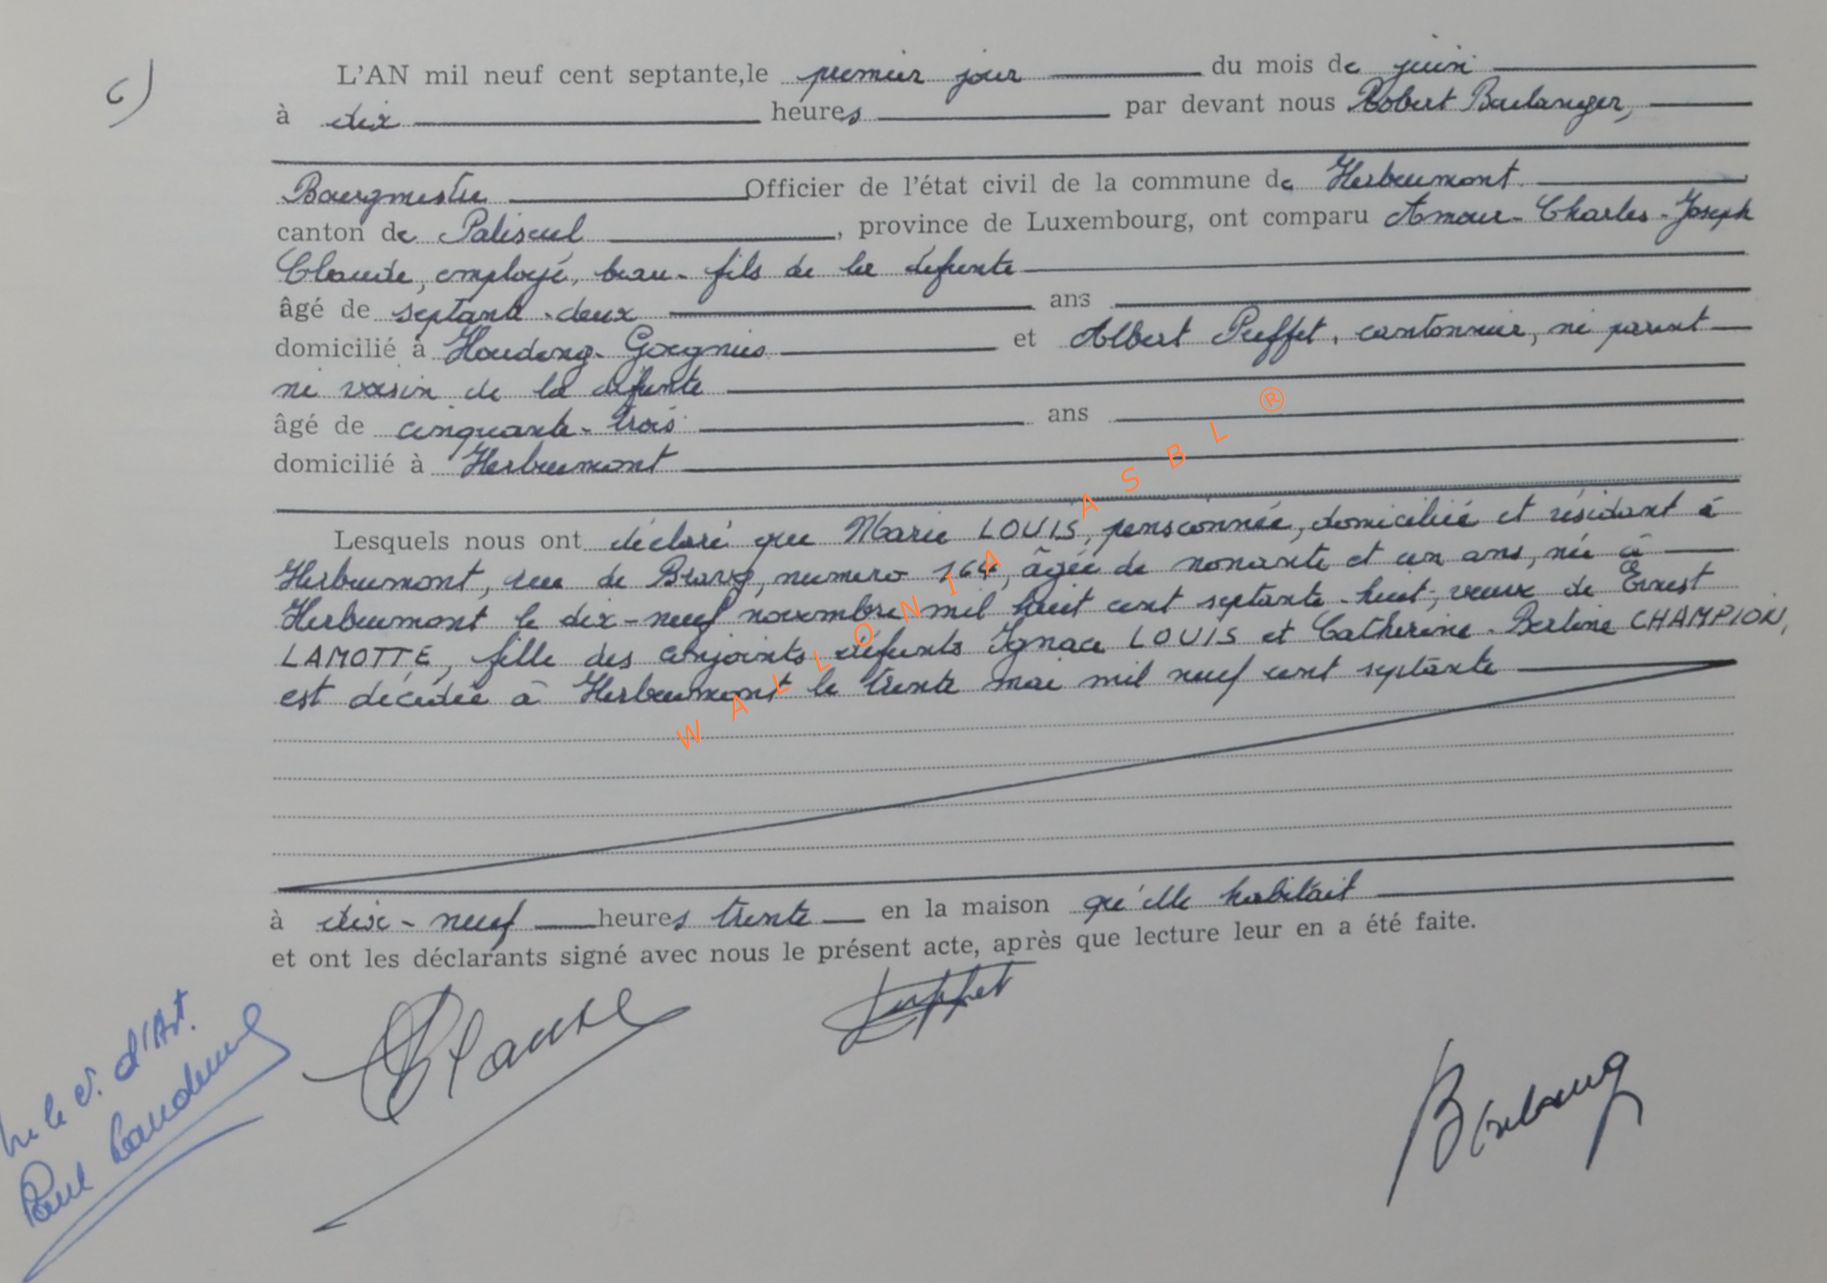 6)
L'AN mil neuf cent septante, le premier jour du mois de juin
à dix heures par devant nous Robert Boulanger,
Bourgmestre Officier de l'état civil de la commune de Herbeumont
canton de Paliseul, province de Luxembourg, ont comparu Amour-Charles-Joseph
Claude, employé, beau-fils de la défunte
âgé de septante-deux ans
domicilié à Houdeng-Goegnies et Albert Puffet, cantonnier, ni parent
ni voisin de la défunte
âgé de cinquante-trois ans
domicilié à Herbeumont
Lesquels nous ont déclaré que Marie LOUIS, pensionnée, domiciliée et résidant à
Herbeumont, rue de Bravy, numéro 164, âgée de nonante et un ans, née à
Herbeumont le dix-neuf novembre mil huit cent septante-huit, veuve de Ernest
LAMOTTE, fille des conjoints défunts Ignace LOUIS et Catherine-Berline CHAMPION,
est décédée à Herbeumont le trente mai mil neuf cent septante
à dix-neuf heures trente en la maison qu'elle habitait
et ont les déclarants signé avec nous le présent acte, après que lecture leur en a été faite.
Claude
Puffet
Boulanger
le C. d'Arr.
Paul
WALLONIA ASBL ®